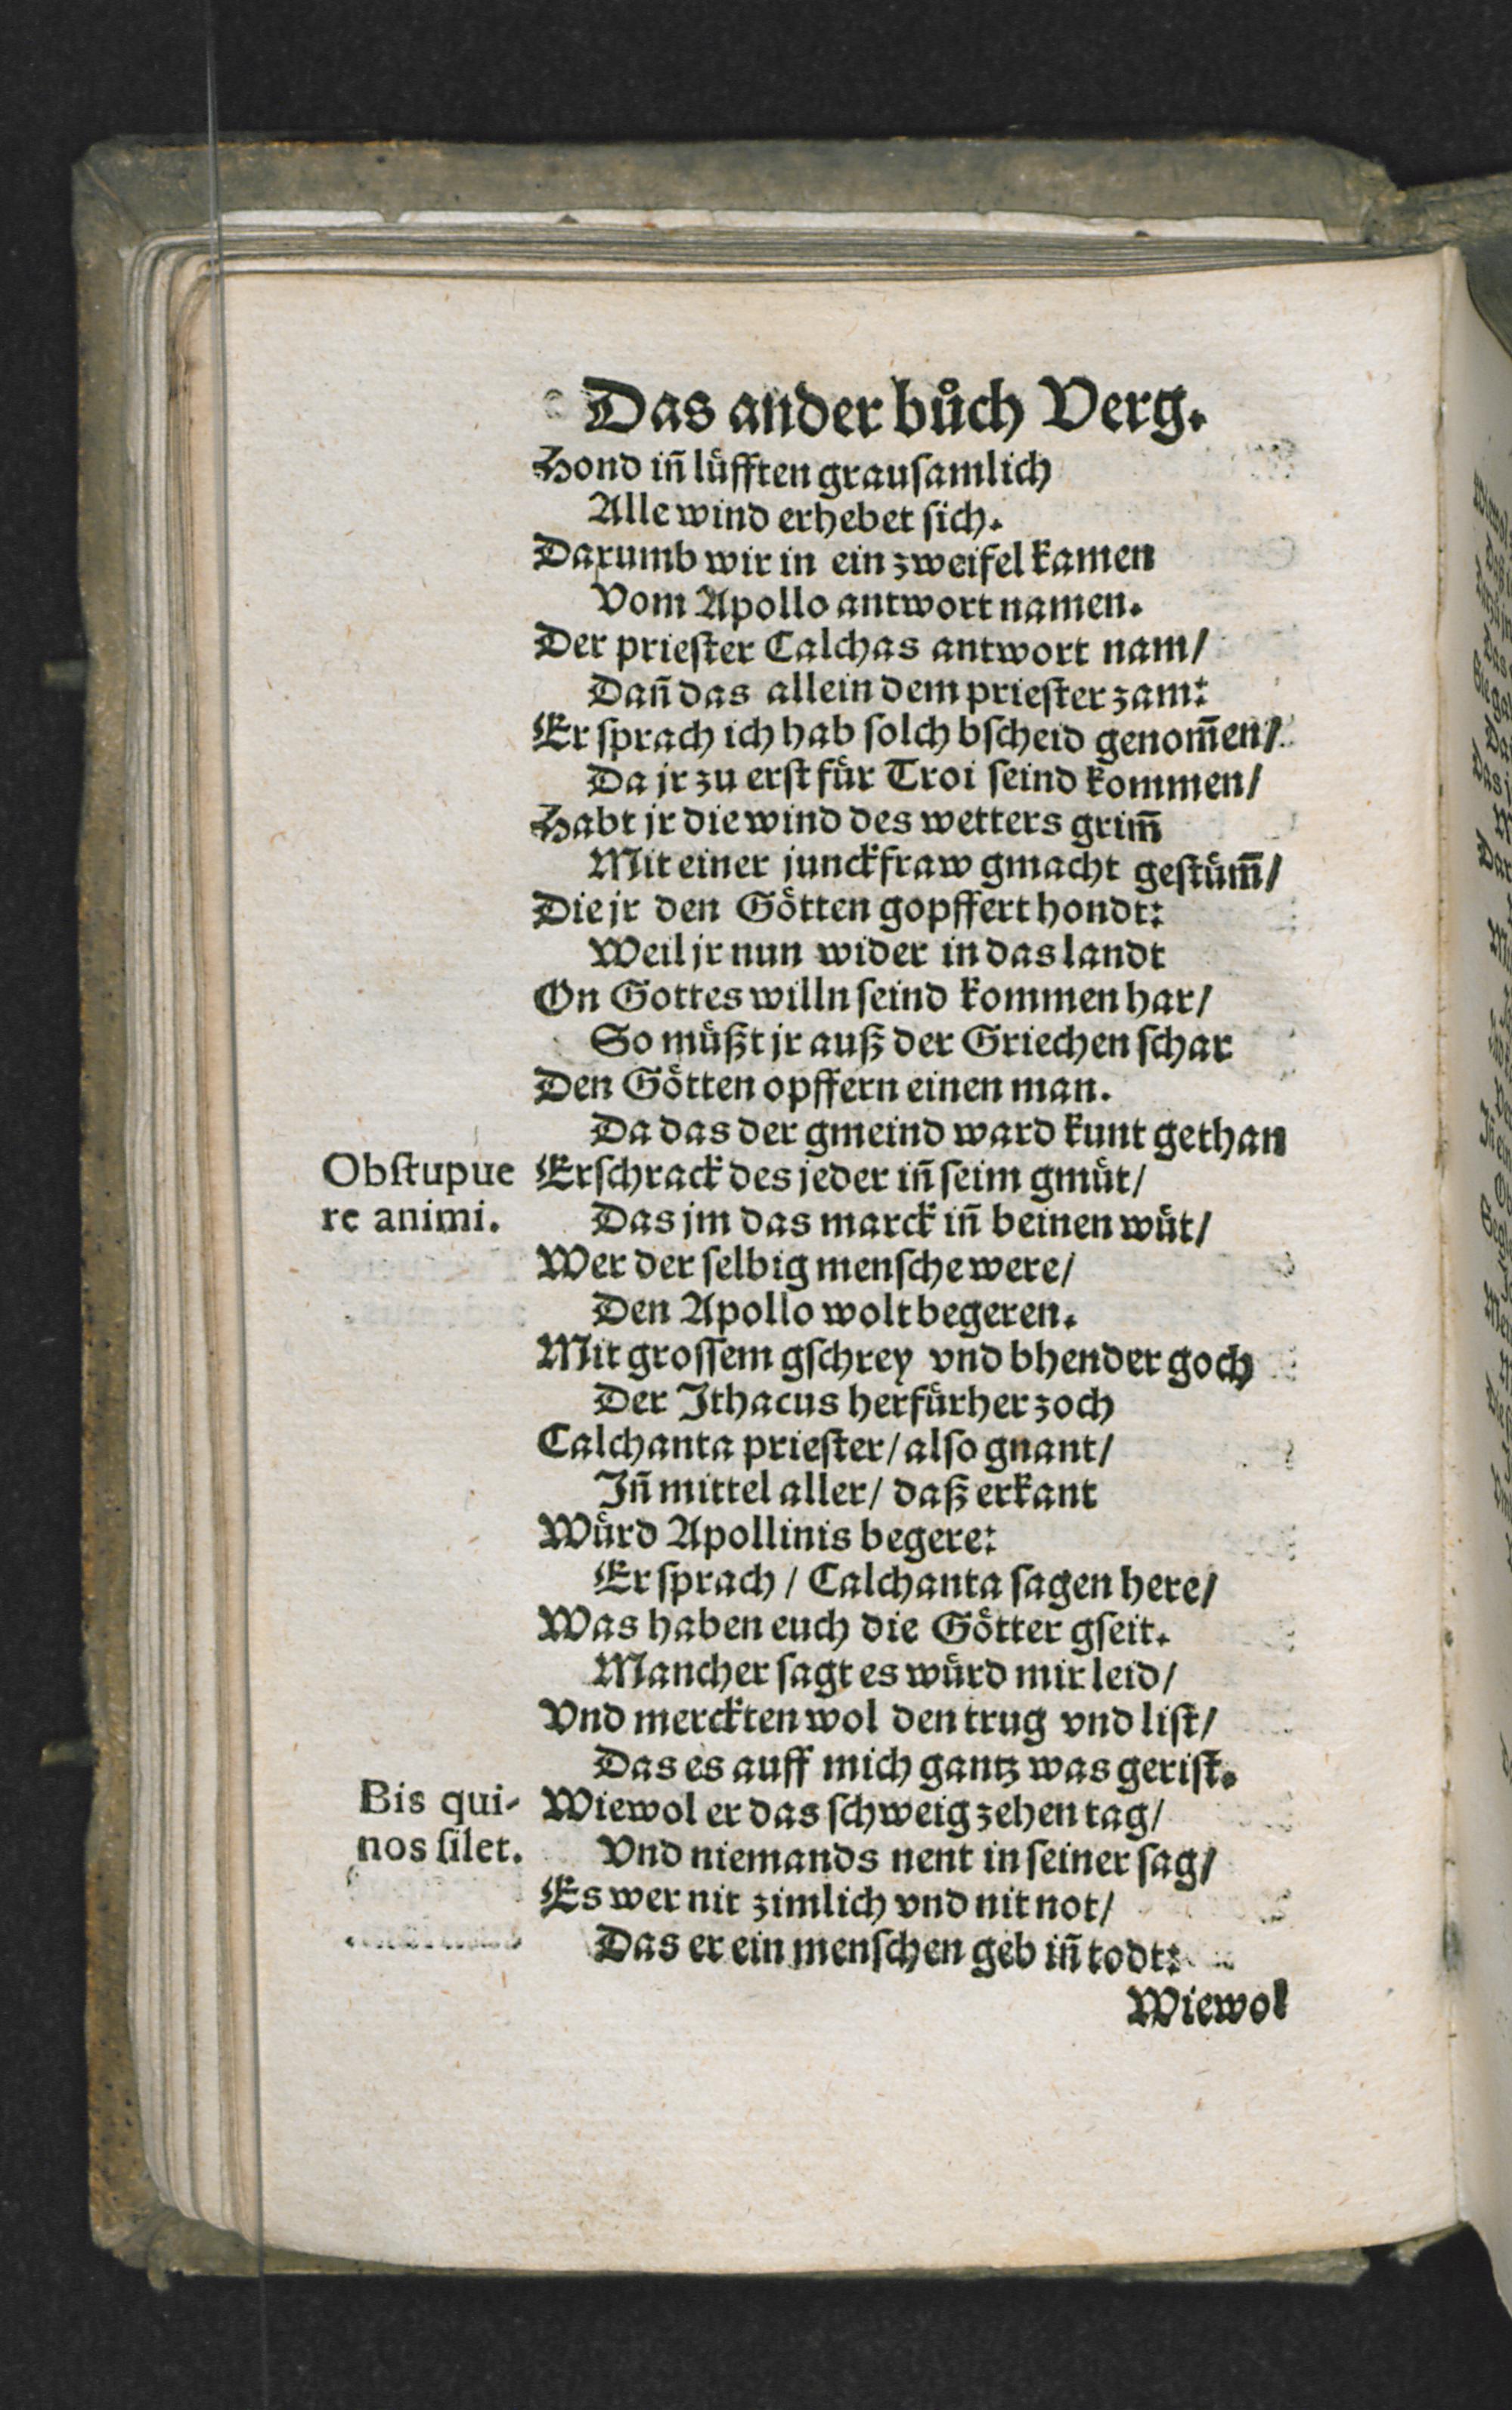 Das ander bůch Verg.
Hond iñ lüfften grauſamlich
Alle wind erhebet ſich.
Darumb wir in ein zweifel kamen
Vom Apollo antwort namen.
Der prieſter Calchas antwort nam/
Dañ das allein dem prieſter zam:
Er ſprach ich hab ſolch bſcheid genom̃en/
Da jr zu erſt für Troi ſeind kommen/
Habt jr die wind des wetters grim̃
Mit einer junckfraw gmacht geſtüm̃/
Die jr den Götten gopffert hondt:
Weil jr nun wider in das landt
On Gottes willn ſeind kommen har/
So müßt jr auß der Griechen ſchar
Den Götten opffern einen man.
Da das der gmeind ward kunt gethan
Obſtupue
re animi.
Erſchrack des jeder iñ ſeim gmüt/
Das jm das marck iñ beinen wüt/
Wer der ſelbig menſche were/
Den Apollo wolt begeren.
Mit groſſem gſchrey vnd bhender goch
Der Ithacus herfürher zoch
Calchanta prieſter/ alſo gnant/
Iñ mittel aller/ daß erkant
Würd Apollinis begere:
Er ſprach/ Calchanta ſagen here/
Was haben euch die Götter gſeit.
Mancher ſagt es würd mir leid/
Vnd merckten wol den trug vnd liſt/
Das es auff mich gantz was geriſt.
Bis qui-
nos ſilet.
Wiewol er das ſchweig zehen tag/
Vnd niemands nent in ſeiner ſag/
Es wer nit zimlich vnd nit not/
Das er ein menſchen geb iñ todt:
Wiewol